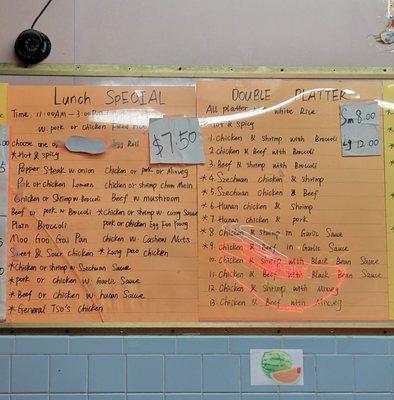 Lunch SPECIAL
TIME: 11:00AM - 3:00
w pork or chicken Fried
$7.50
choose one o Egg Roll
* Hot & spicy
Pepper Steak w onion
Chicken or pork or Mixveg
Pork or Chicken Lomein
Chicken or Shrimp Chow Mein
Chicken or Shrimp w Broccoli
Beef w mushroom
Beef or pork w Broccoli
* Chicken or shrimp w curry sauce
Plain Broccoli
pork or chicken Egg Foo Young
Moo Goo Gai Pan
Chicken w. Cashew Nuts
Sweet & Sour Chicken
* Kung pao chicken
* Chicken or shrimp w Szechuan Sauce
* pork or chicken w. Garlic Sauce
* Beef or chicken w hunan Sauce
* General Tso's Chicken
DOUBLE PLATTER
All platter white Rice
Hot & spicy
Sm 8.00
Lg 12.00
1. Chicken & shrimp with Broccoli
2. Chicken & Beef with Broccoli
3. Beef & Shrimp with Broccoli
* 4. Szechuan chicken & Shrimp
* 5. Szechuan Chicken & Beef
* 6. Hunan chicken & Shrimp
* 7. Hunan Chicken & pork
* 8. Chicken & Shrimp in Garlic Sauce
* 9. Chicken & Beef in Garlic Sauce
10. Chicken & shrimp with Black Bean Sauce
11. Chicken & Beef with Black Bean Sauce
12. Chicken & Shrimp with Mixveg
13. Chicken & Beef with Mixveg
8.00